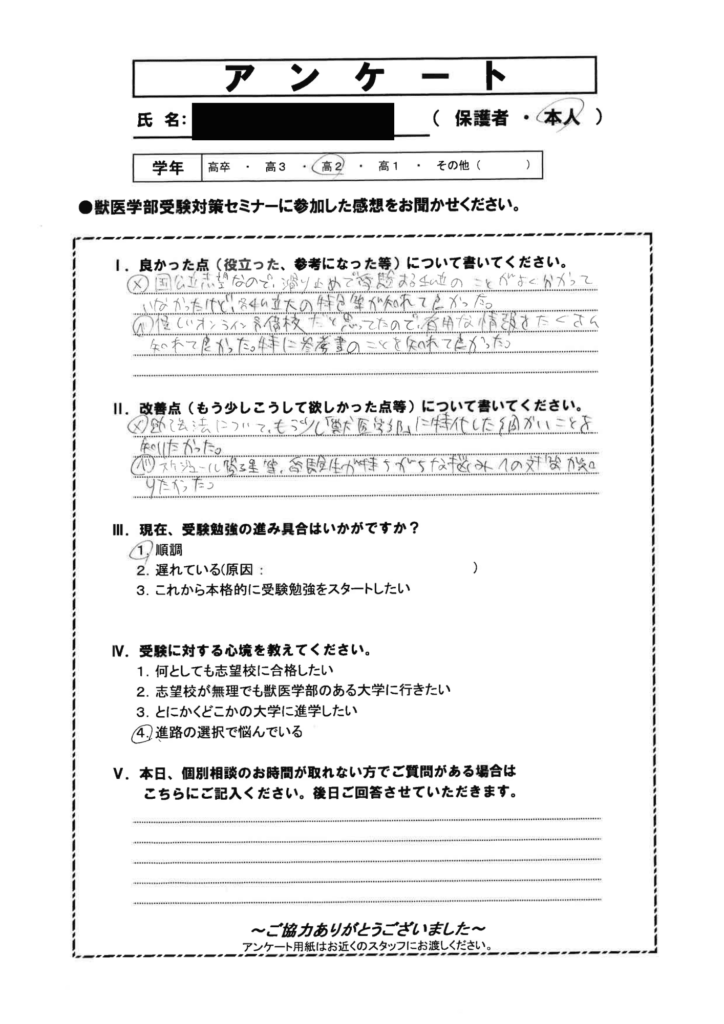 アンケート
氏 名: （ 保護者 ・ 本人 ）
学年 高卒 ・ 高３ ・ 高２ ・ 高１ ・ その他（ ）
●獣医学部受験対策セミナーに参加した感想をお聞かせください。
Ⅰ．良かった点（役立った、参考になった等）について書いてください。
国公立志望なので、滑り止めで受験する私立のことがよく分かって
いなかったけど、各私立大の特色等が知れて良かった。
怪しいオンライン予備校だと思ってたので、有用な情報をたくさん
知れて良かった。特に参考書のことを知れて良かった。
Ⅱ．改善点（もう少しこうして欲しかった点等）について書いてください。
勉強法について、もう少し「獣医学部」に特化した細かいことを
知りたかった。
スケジュール管理等、受験生が持ちがちな悩みへの対策が知
りたかった。
Ⅲ．現在、受験勉強の進み具合はいかがですか？
1．順調
2．遅れている(原因： )
3．これから本格的に受験勉強をスタートしたい
Ⅳ．受験に対する心境を教えてください。
1．何としても志望校に合格したい
2．志望校が無理でも獣医学部のある大学に行きたい
3．とにかくどこかの大学に進学したい
4．進路の選択で悩んでいる
Ⅴ．本日、個別相談のお時間が取れない方でご質問がある場合は
こちらにご記入ください。後日ご回答させていただきます。
～ご協力ありがとうございました～
アンケート用紙はお近くのスタッフにお渡しください。